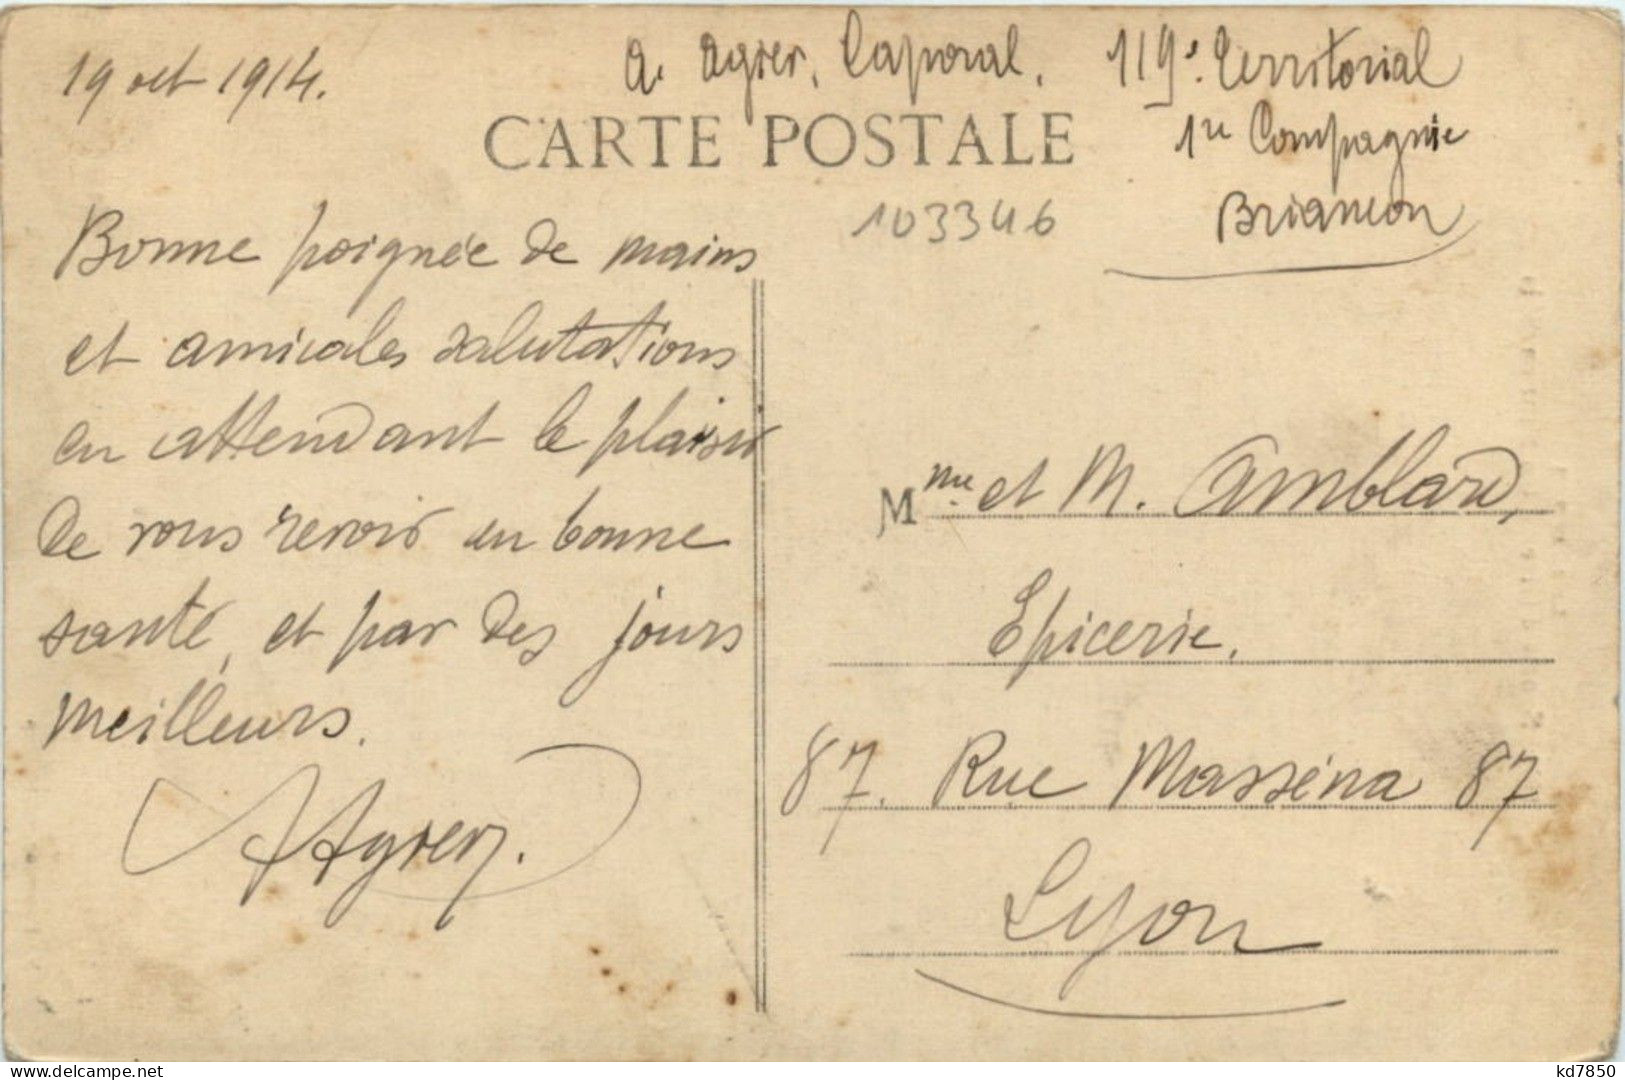 19 oct 1914.
A. Agier, Caporal, 119e. Territorial
1re Compagnie
Briançon
CARTE POSTALE
103346
Bonne poignée de mains
et amicales salutations
en attendant le plaisir
de vous revoir en bonne
santé, et par des jours
meilleurs.
AAgier.
Mme. et M. Amblard,
Epicerie.
87. Rue Masséna 87
Lyon
kd7850